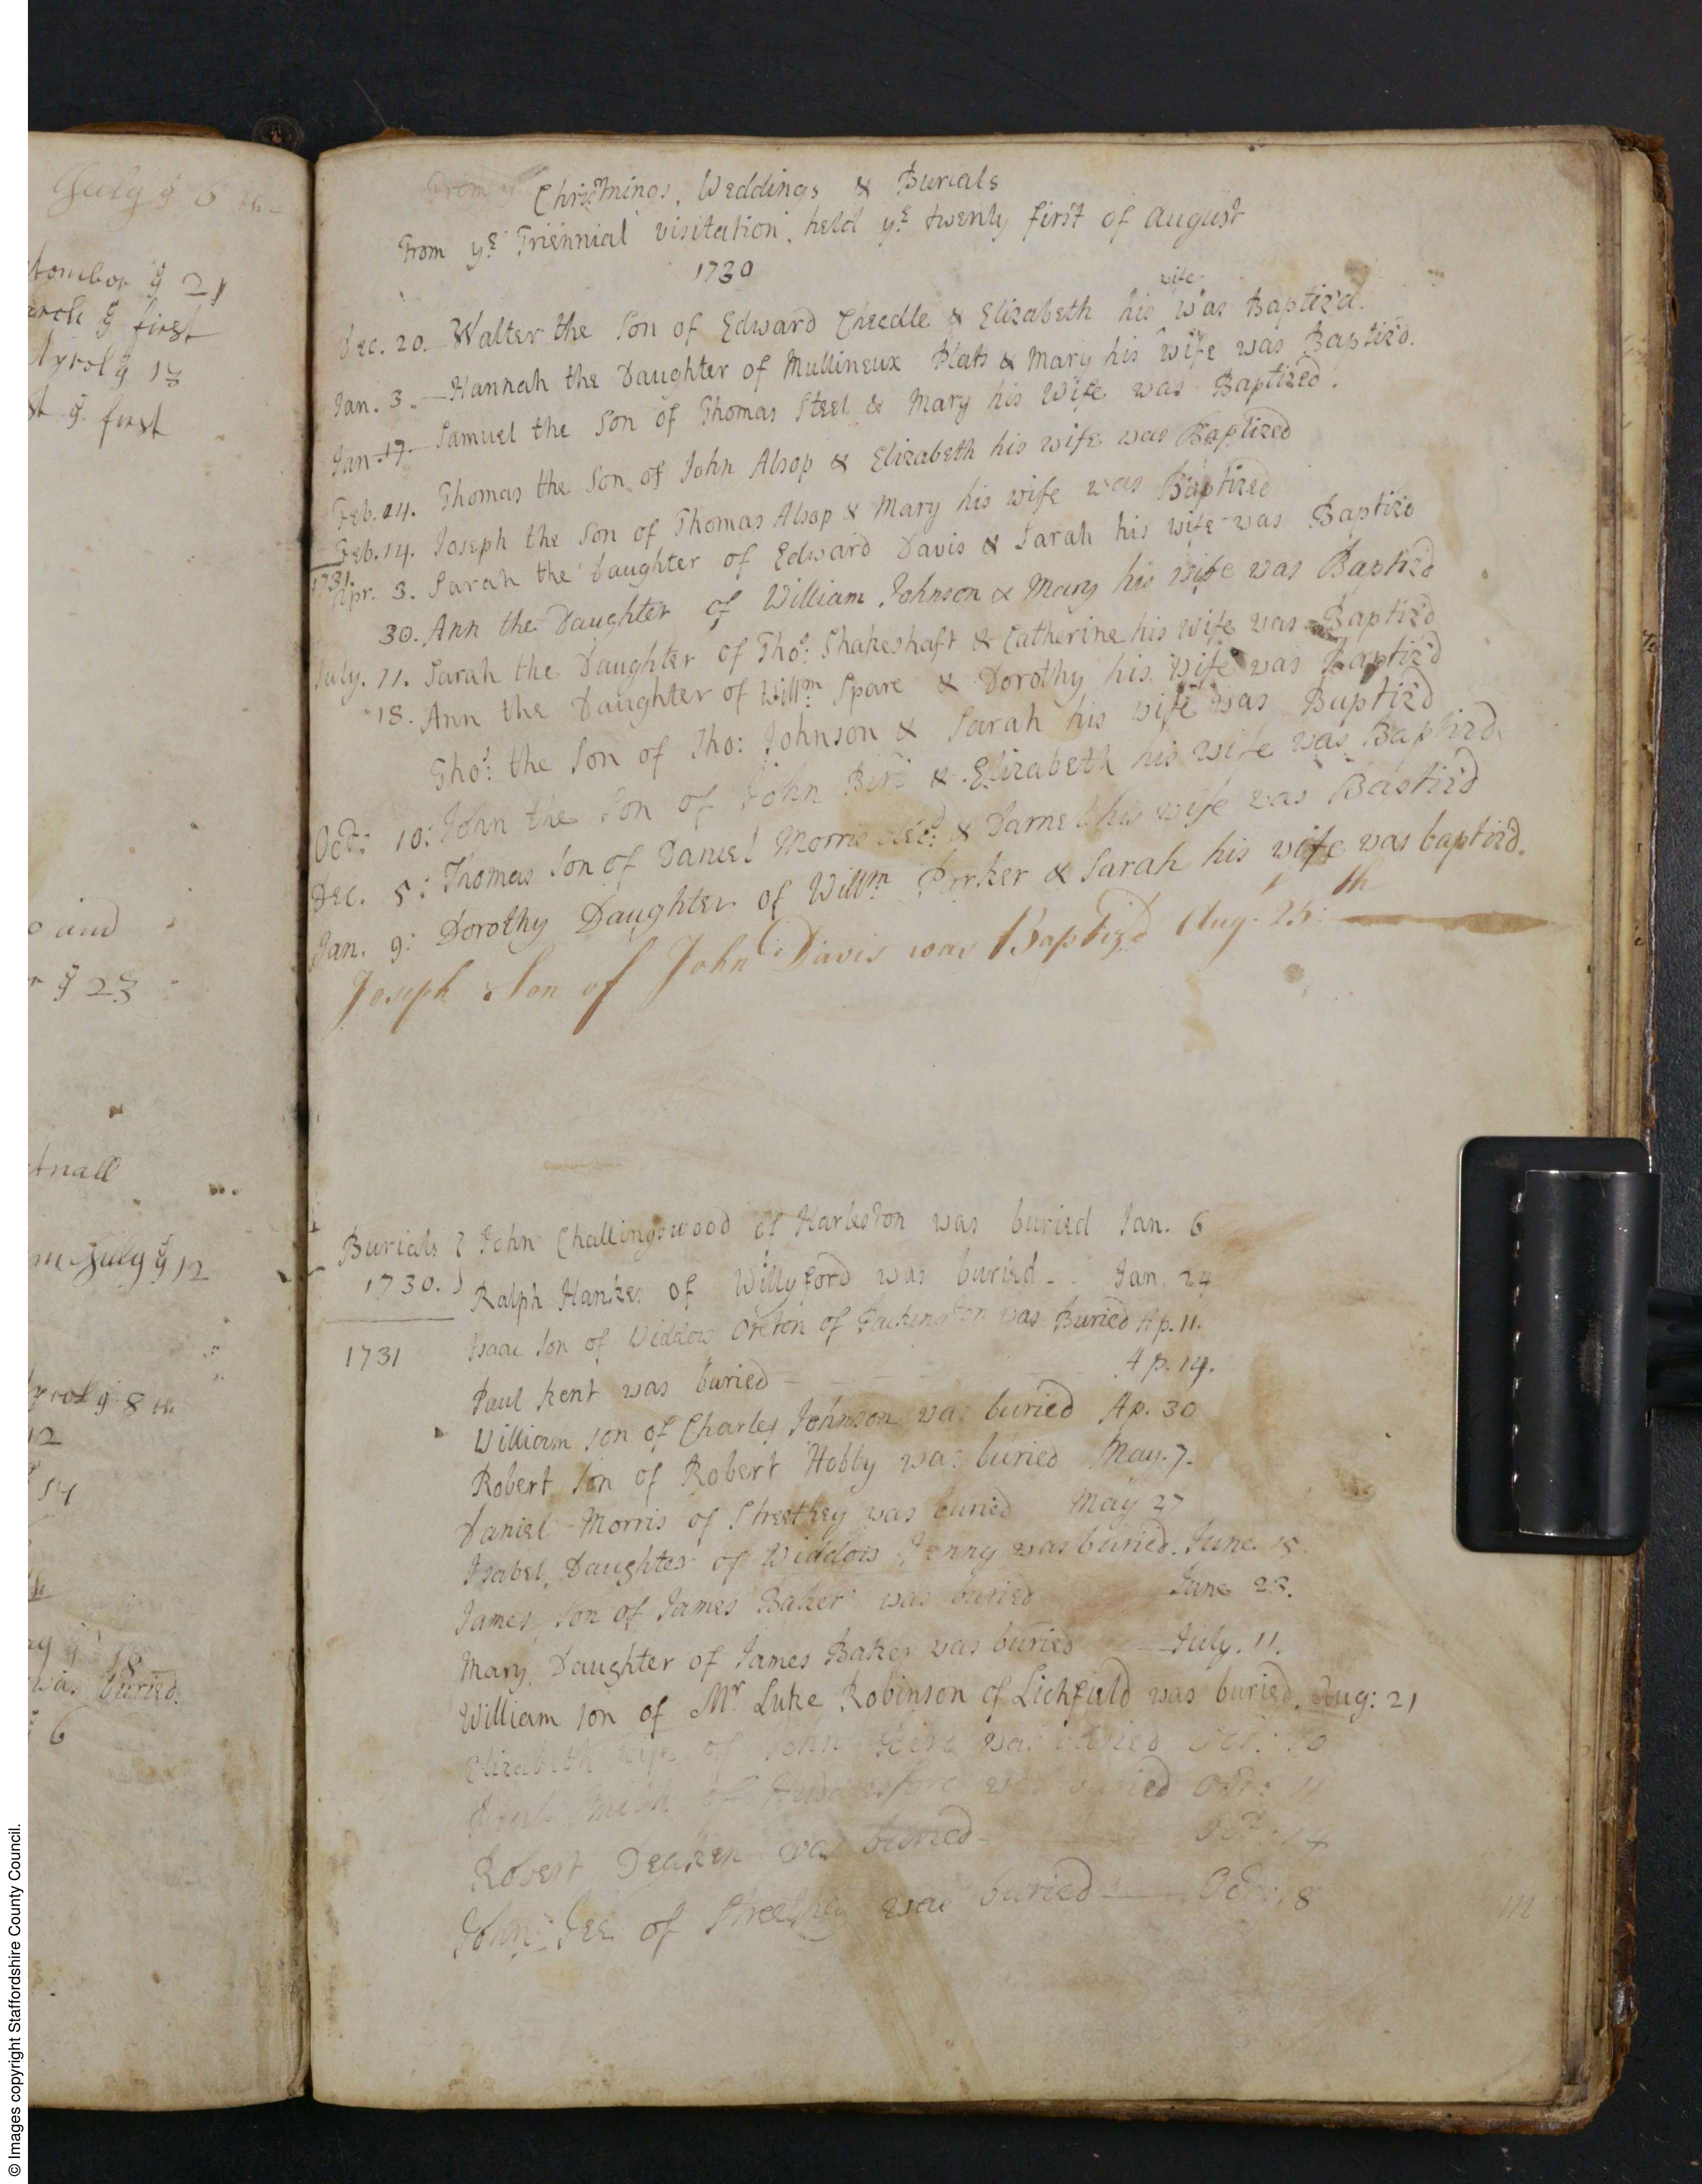 July ye 6 th
21
first
17
first
and
ye 23
July ye 12
ye 8 th
12
14
18
was buried.
6
From ye
Christnings, Weddings & Burials
From ye Triennial visitation, held ye twenty first of August
1730
Dec. 20. Walter the Son of Edward Cheedle & Elizabeth his wife was Baptiz'd.
Jan. 3. Hannah the Daughter of Mullineux Plats & Mary his wife was Baptiz'd.
Jan. 17. Samuel the Son of Thomas Steel & Mary his Wife was Baptized.
Feb. 14. Thomas the Son of John Alsop & Elizabeth his wife was Baptized
Feb. 14. Joseph the Son of Thomas Alsop & Mary his wife was Baptized
1731. Apr. 3. Sarah the Daughter of Edward Davis & Sarah his wife was Baptiz'd
30. Ann the Daughter of William Johnson & Mary his wife was Baptiz'd
July. 11. Sarah the Daughter of Tho.s Shakeshaft & Catherine his wife was Baptiz'd
18. Ann the Daughter of Willm Spare & Dorothy his wife was Baptiz'd
Tho.s the Son of Tho: Johnson & Sarah his wife was Baptiz'd
Oct: 10: John the Son of John Bird & Elizabeth his wife was Baptiz'd
Dec. 5: Thomas Son of Daniel Morris dec.d & his wife was Baptiz'd
Jan. 9: Dorothy Daughter of Willm Parker & Sarah his wife was baptiz'd.
Joseph Son of John Davis was Baptiz'd Aug. 25th
Burials John Challingswood of Harleston was buried Jan. 6
1730. Ralph Hankes of Willyford was buried Jan. 24
1731 Isaac Son of Widdow Oreton of Packington was Buried Ap. 11.
Paul Kent was buried Ap. 14.
William son of Charles Johnson was buried Ap. 30
Robert Son of Robert Hobby was buried May. 7.
Daniel Morris of Streethey was buried May 27
Isabel, Daughter of Widdow was buried. June. 15.
James, Son of James Baker was buried June 23.
Mary, Daughter of James Baker was buried July. 11.
William Son of Mr Luke Robinson of Lichfield was buried, Aug: 21
Elizabeth wife of John was buried Oct: 10
of was buried Oct:
Robert Deaken was buried Oct: 14
John Gee of Streethey was buried Oct: 18
© Images copyright Staffordshire County Council.